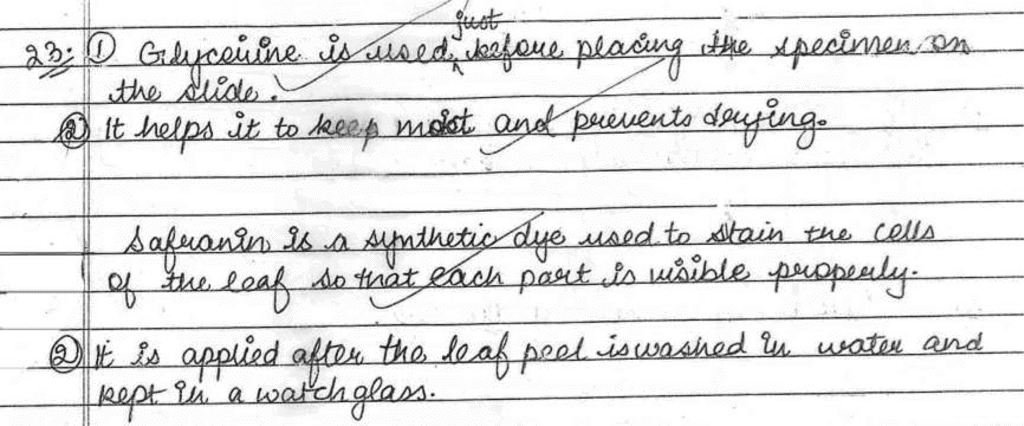 23: ① Glycerine is used just before placing the specimen on
the slide.
② It helps it to keep moist and prevents drying.
Safranin is a synthetic dye used to stain the cells
of the leaf so that each part is visible properly.
② It is applied after the leaf peel is washed in water and
kept in a watch glass.